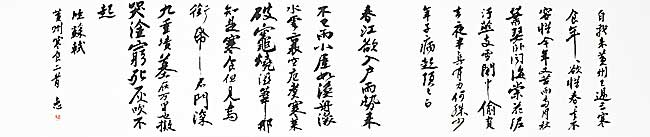 自我來黃州已過三寒
食年〻欲惜春〻去不
容惜今年又苦雨兩月秋
蕭瑟臥聞海棠花泥
汙燕支雪闇中偷負
去夜半真有力何殊少
年子病起頭已白
春江欲入戶雨勢來
不已雨小屋如漁舟濛〻
水雲裏空庖煮寒菜
破竈燒濕葦那
知是寒食但見烏
銜帋君門深
九重墳墓在萬里也擬
哭塗窮死灰吹不
起
臨蘇軾
黃州寒食二首